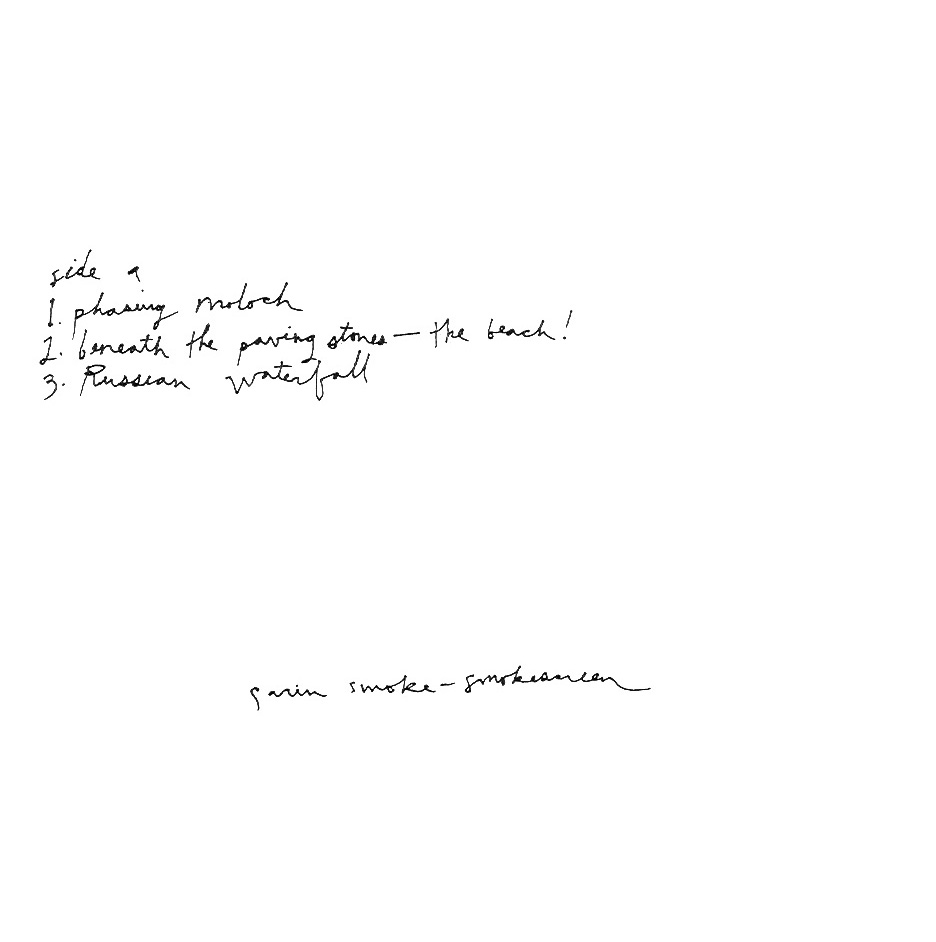 side a
1. phasing moloch
2. beneath the paving stones — the beach!
3. Russian waterfall
garin smoke - smokescreen